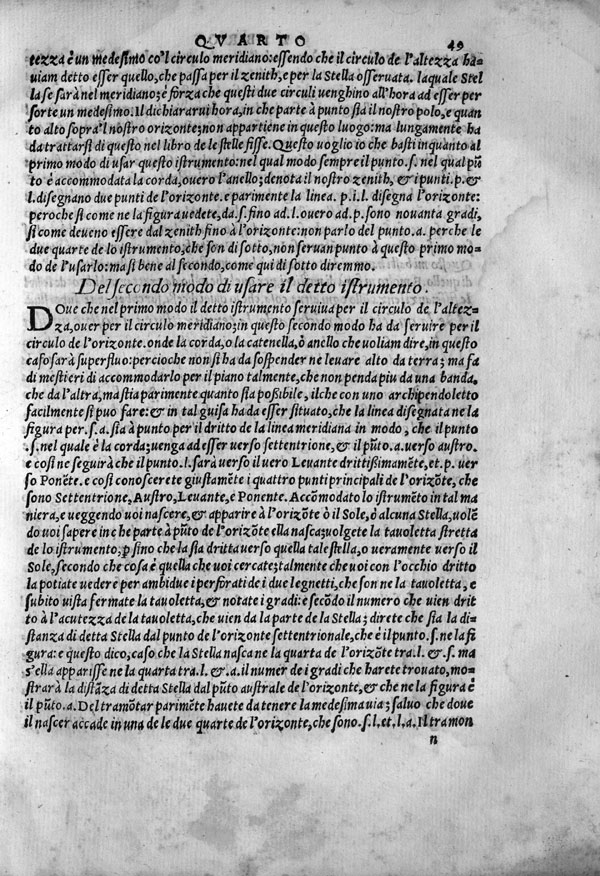 QVARTO 49
tezza è un medesimo co'l circulo meridiano: eſſendo che il circulo de l'altezza ha-
uiam detto eſſer quello, che paſſa per il zenith, e per la Stella oſſeruata. laquale Stel
la ſe ſarà nel meridiano; è forza che queſti due circuli uenghino all'hora ad eſſer per
ſorte un medeſimo. Il dichiararui hora, in che parte à punto ſia il noſtro polo, e quan
to alto ſopra'l noſtro orizonte; non appartiene in queſto luogo: ma lungamente ha
da trattarſi di queſto nel libro de le ſtelle fiſſe. Queſto uoglio io che baſti inquanto al
primo modo di uſar queſto iſtrumento: nel qual modo ſempre il punto .ſ. nel qual pũ
to è accommodata la corda, ouero l'anello; denota il noſtro zenith, & i punti .p. &
l. diſegnano due punti de l'orizonte. e parimente la linea. p.i.l. diſegna l'orizonte:
peroche ſi come ne la figura uedete, da .ſ. fino ad .l. ouero ad .p. ſono nouanta gradi,
ſi come deueno eſſere dal zenith fino à l'orizonte: non parlo del punto .a. perche le
due quarte de lo iſtrumento, che ſon di ſotto, non ſeruan punto à queſto primo mo-
do de l'uſarlo: ma ſi bene al ſecondo, come qui di ſotto diremmo.
Del ſecondo modo di uſare il detto iſtrumento.
DOue che nel primo modo il detto iſtrumento ſeruiua per il circulo de l'altez-
za, ouer per il circulo meridiano; in queſto ſecondo modo ha da ſeruire per il
circulo de l'orizonte. onde la corda, o la catenella, ò anello che uoliam dire, in queſto
caſo ſarà ſuperfluo: percioche non ſi ha da ſoſpender ne leuare alto da terra; ma fa
di meſtieri di accommodarlo per il piano talmente, che non penda piu da una banda,
che da l'altra, ma ſtia parimente quanto ſia poßibile, ilche con uno archipendoletto
facilmente ſi puo fare: & in tal guiſa ha da eſſer ſituato, che la linea diſegnata ne la
figura per .ſ.a. ſia à punto per il dritto de la linea meridiana in modo, che il punto
.ſ. nel quale è la corda; uenga ad eſſer uerſo ſettentrione, & il pũto .a. uerſo auſtro.
e coſi ne ſeguirà che il punto .l. ſarà uerſo il uero Leuante drittißimamẽte, et .p. uer
ſo Ponẽte. e coſi conoſcerete giuſtamẽte i quattro punti principali de l'orizõte, che
ſono Settentrione, Auſtro, Leuante, e Ponente. Accõmodato lo iſtrumẽto in tal ma
niera, e ueggendo uoi naſcere, & apparire à l'orizõte ò il Sole, ò alcuna Stella, uolẽ
do uoi ſapere in che parte à pũto de l'orizõte ella naſca; uolgete la tauoletta ſtretta
de lo iſtrumento, ꝑ fino che la ſia dritta uerſo quella tale ſtella, o ueramente uerſo il
Sole, ſecondo che coſa è quella che uoi cercate; talmente che uoi con l'occhio dritto
la potiate uedere per ambidue i perfirati de i due legnetti, che ſon ne la tauoletta, e
ſubito uiſta fermate la tauoletta, & notate i gradi: e ſecõdo il numero che uien drit
to à l'acutezza de la tauoletta, che uien da la parte de la Stella; direte che ſia la di-
ſtanza di detta Stella dal punto de l'orizonte ſettentrionale, che è il punto .ſ. ne la fi
gura: e queſto dico, caſo che la Stella naſca ne la quarta de l'orizõte tra .l. & .ſ. ma
s'ella appariſſe ne la quarta tra .l. & .a. il numer de i gradi che harete trouato, mo-
ſtrarà la diſtãza di detta Stella dal pũto auſtrale de l'orizonte, & che ne la figura è
il pũto .a. Del tramõtar parimẽte hauete da tenere la medeſima uia; ſaluo che doue
il naſcer accade in una de le due quarte de l'orizonte, che ſono .ſ.l. et .l.a. Il tramon
n